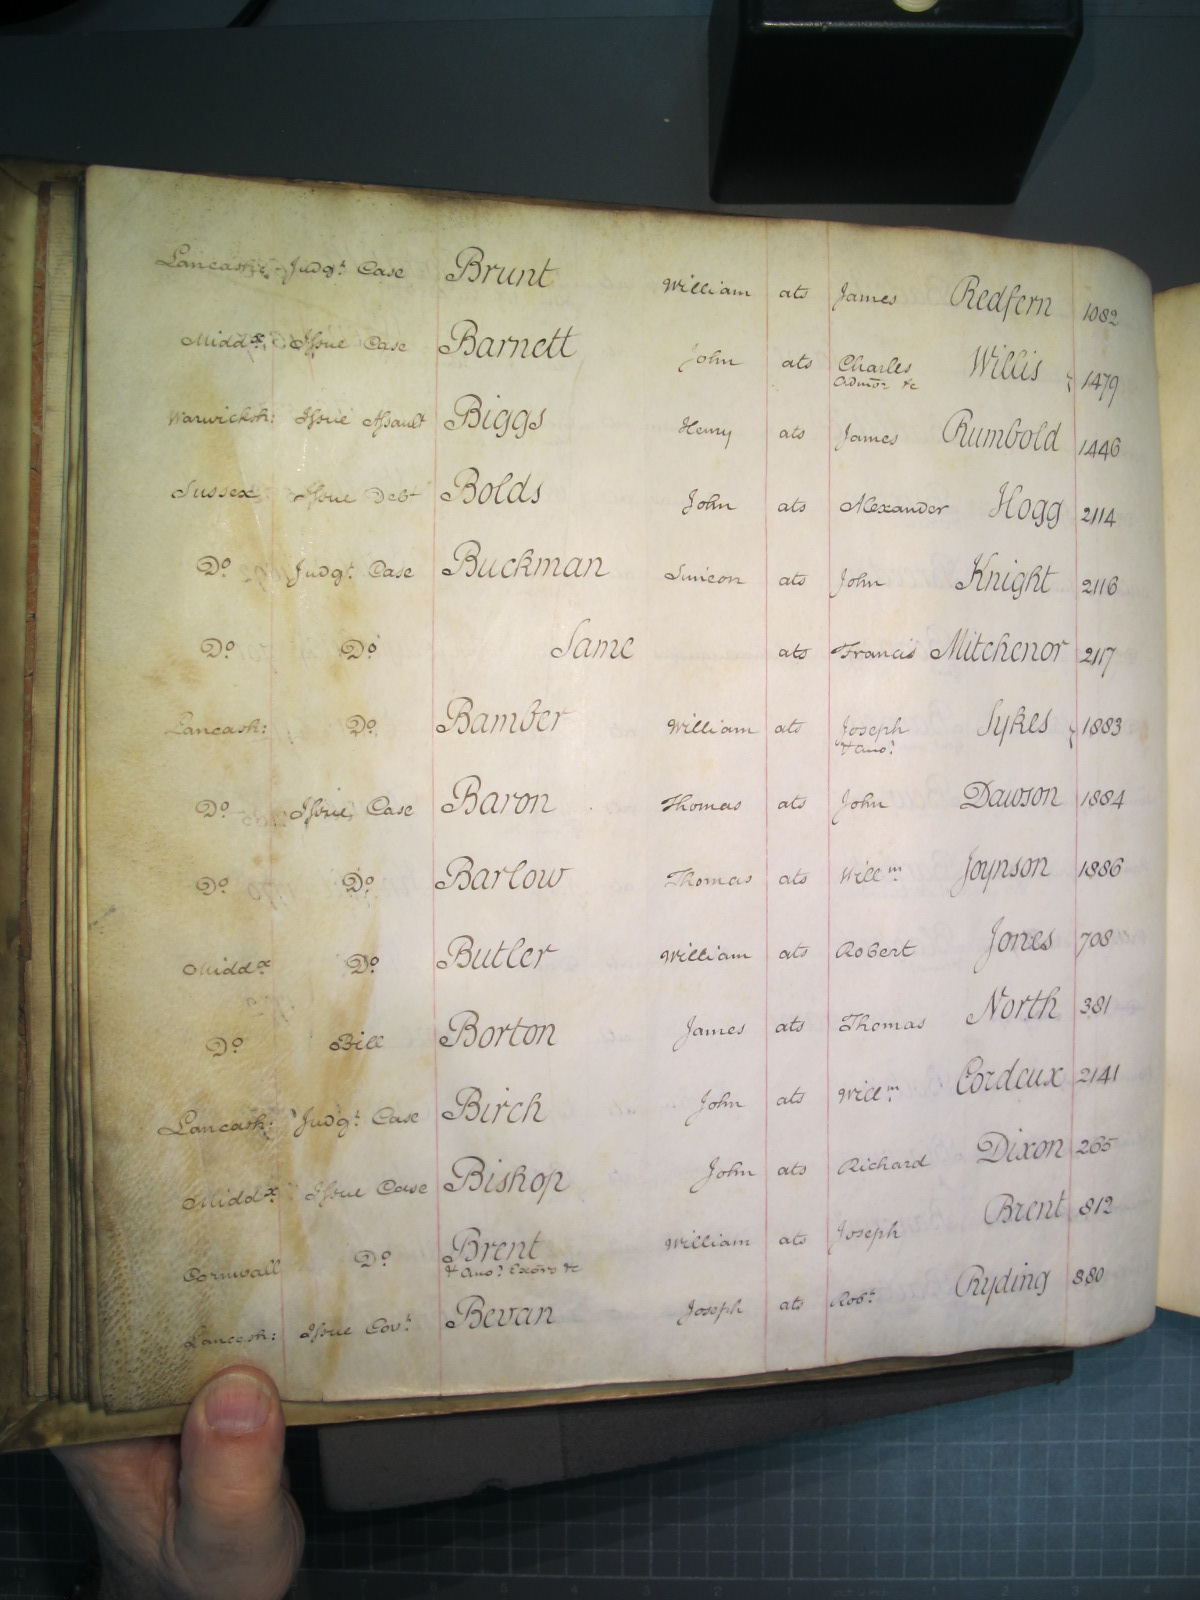 Lancash: Judgt. Case Brunt William ats James Redfern 1082
Middx. Issue Case Barnett John ats Charles Willis 1479
Admor &c
Warwicksh: Issue Assault Biggs Henry ats James Rumbold 1446
Sussex Issue Debt Bolds John ats Alexander Hogg 2114
Do. Judgt. Case Buckman Simeon ats John Knight 2116
Do. Do. Same ats Francis Mitchenor 2117
Lancash: Do. Bamber William ats Joseph Sykes 1883
& Ano.
Do. Issue Case Baron Thomas ats John Dawson 1884
Do. Do. Barlow Thomas ats Willm. Joynson 1886
Middx Do. Butler William ats Robert Jones 708
Do. Bill Borton James ats Thomas North 381
Lancash: Judgt. Case Birch John ats Willm. Cordeux 2141
Middx. Issue Case Bishop John ats Richard Dixon 265
Cornwall Do. Brent William ats Joseph Brent 812
& Ano. Exors &c
Lancash: Issue Covt. Bevan Joseph ats Robt. Ryding 880